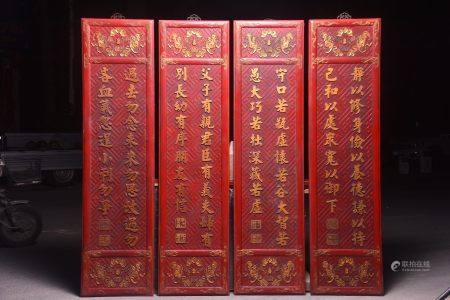 靜以修身儉以養德謙以持
己和以處眾寬以御下
守口若瓶虛懷若谷大智若
愚大巧若拙深藏若虛
父子有親君臣有義夫婦有
別長幼有序朋友有信
過去勿念未來勿思改過勿
血氣逞小利勿爭
联拍在线